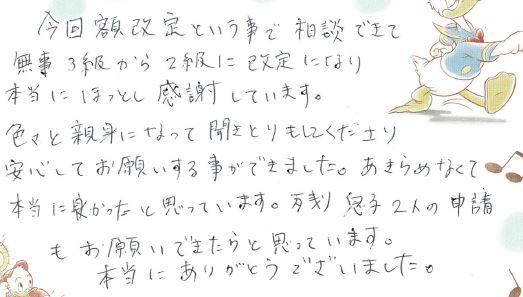 今回額改定という事で相談できて
無事3級から2級に改定になり
本当にほっとし感謝しています。
色々と親身になって聞きとりもしてくださり
安心してお願いする事ができました。あきらめなくて
本当に良かったと思っています。又、息子2人の申請
もお願いできたらと思っています。
本当にありがとうございました。